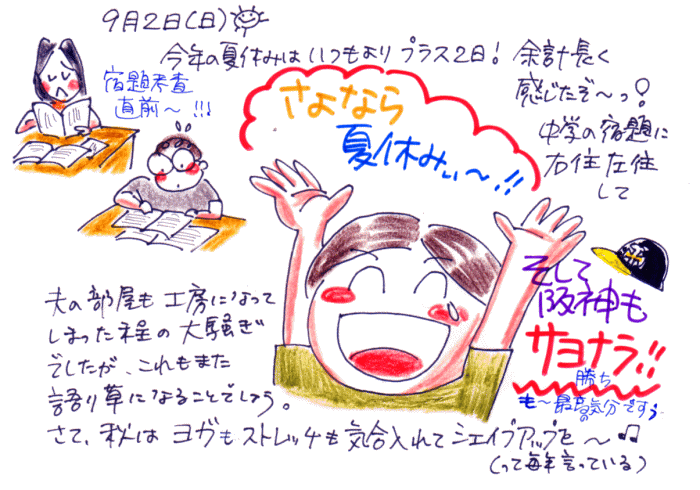 9月2日(日)
今年の夏休みはいつもよりプラス2日! 余計長く
感じたぞ〜っ!
中学の宿題に
右住左住
して
宿題考査
直前〜!!!
さよなら
夏休みぃ〜!!
そして
阪神も
サヨナラ!!
勝ち
も〜最高の気分ですぅ
夫の部屋も工房になって
しまった程の大騒ぎ
でしたが、これもまた
語り草になることでしょう。
さて、秋はヨガもストレッチも気合入れてシェイプアップを〜♫
(って毎年言っている)